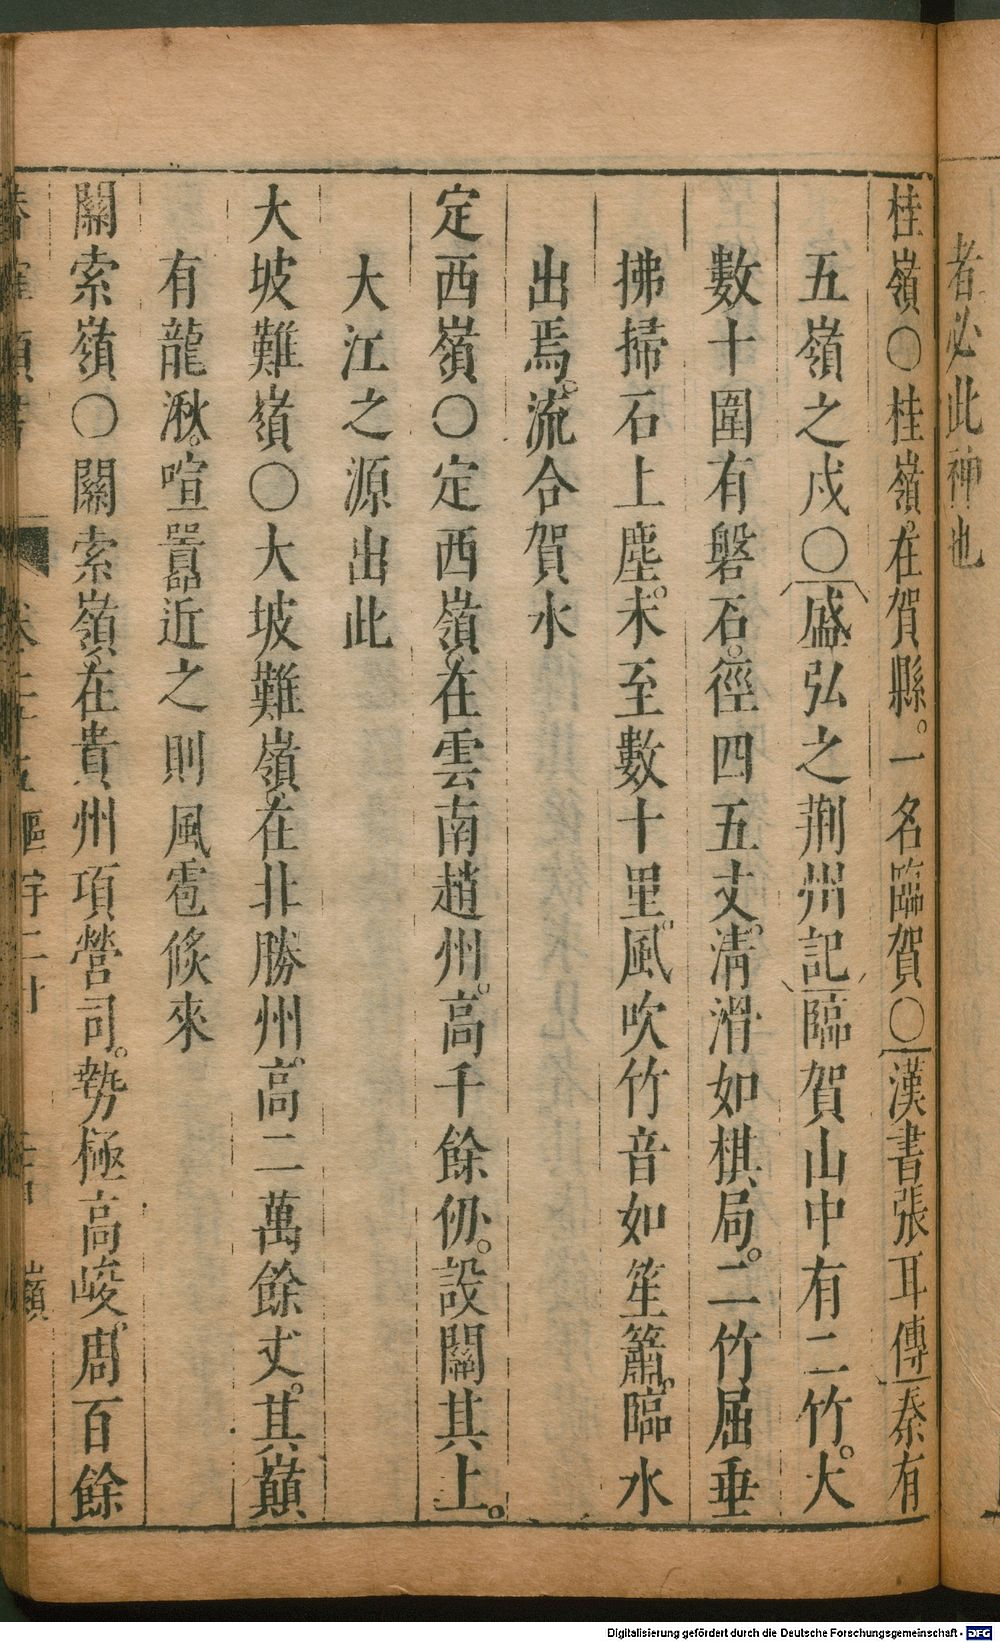 者必此神也
桂嶺〇桂嶺。在賀縣。一名臨賀〇漢書張耳傳秦有
五嶺之戍〇盛弘之荆州記臨賀山中有二竹。大
數十圍有磐石。徑四五丈。清滑如棋局。二竹屈垂
拂掃石上塵。未至數十里。風吹竹音如笙簫。臨水
出焉。流合賀水
定西嶺〇定西嶺。在雲南趙州。高千餘仞。設關其上。
大江之源出此
大坡難嶺〇大坡難嶺。在非勝州。高二萬餘丈。其巔
有龍湫。喧嚣近之則風雹倐來
關索嶺〇關索嶺。在貴州項營司。勢極高峻。周百餘
卷二十五
嶺
Digitalisierung gefördert durch die Deutsche Forschungsgemeinschaft - DFG